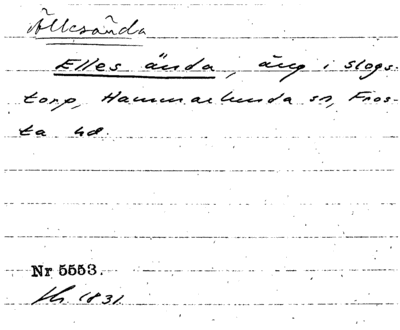 Ällesända
Elles ända, äng i Slogs-
torp, Hammarlunda sn, Fros-
ta hd.
Nr 5553.
1831